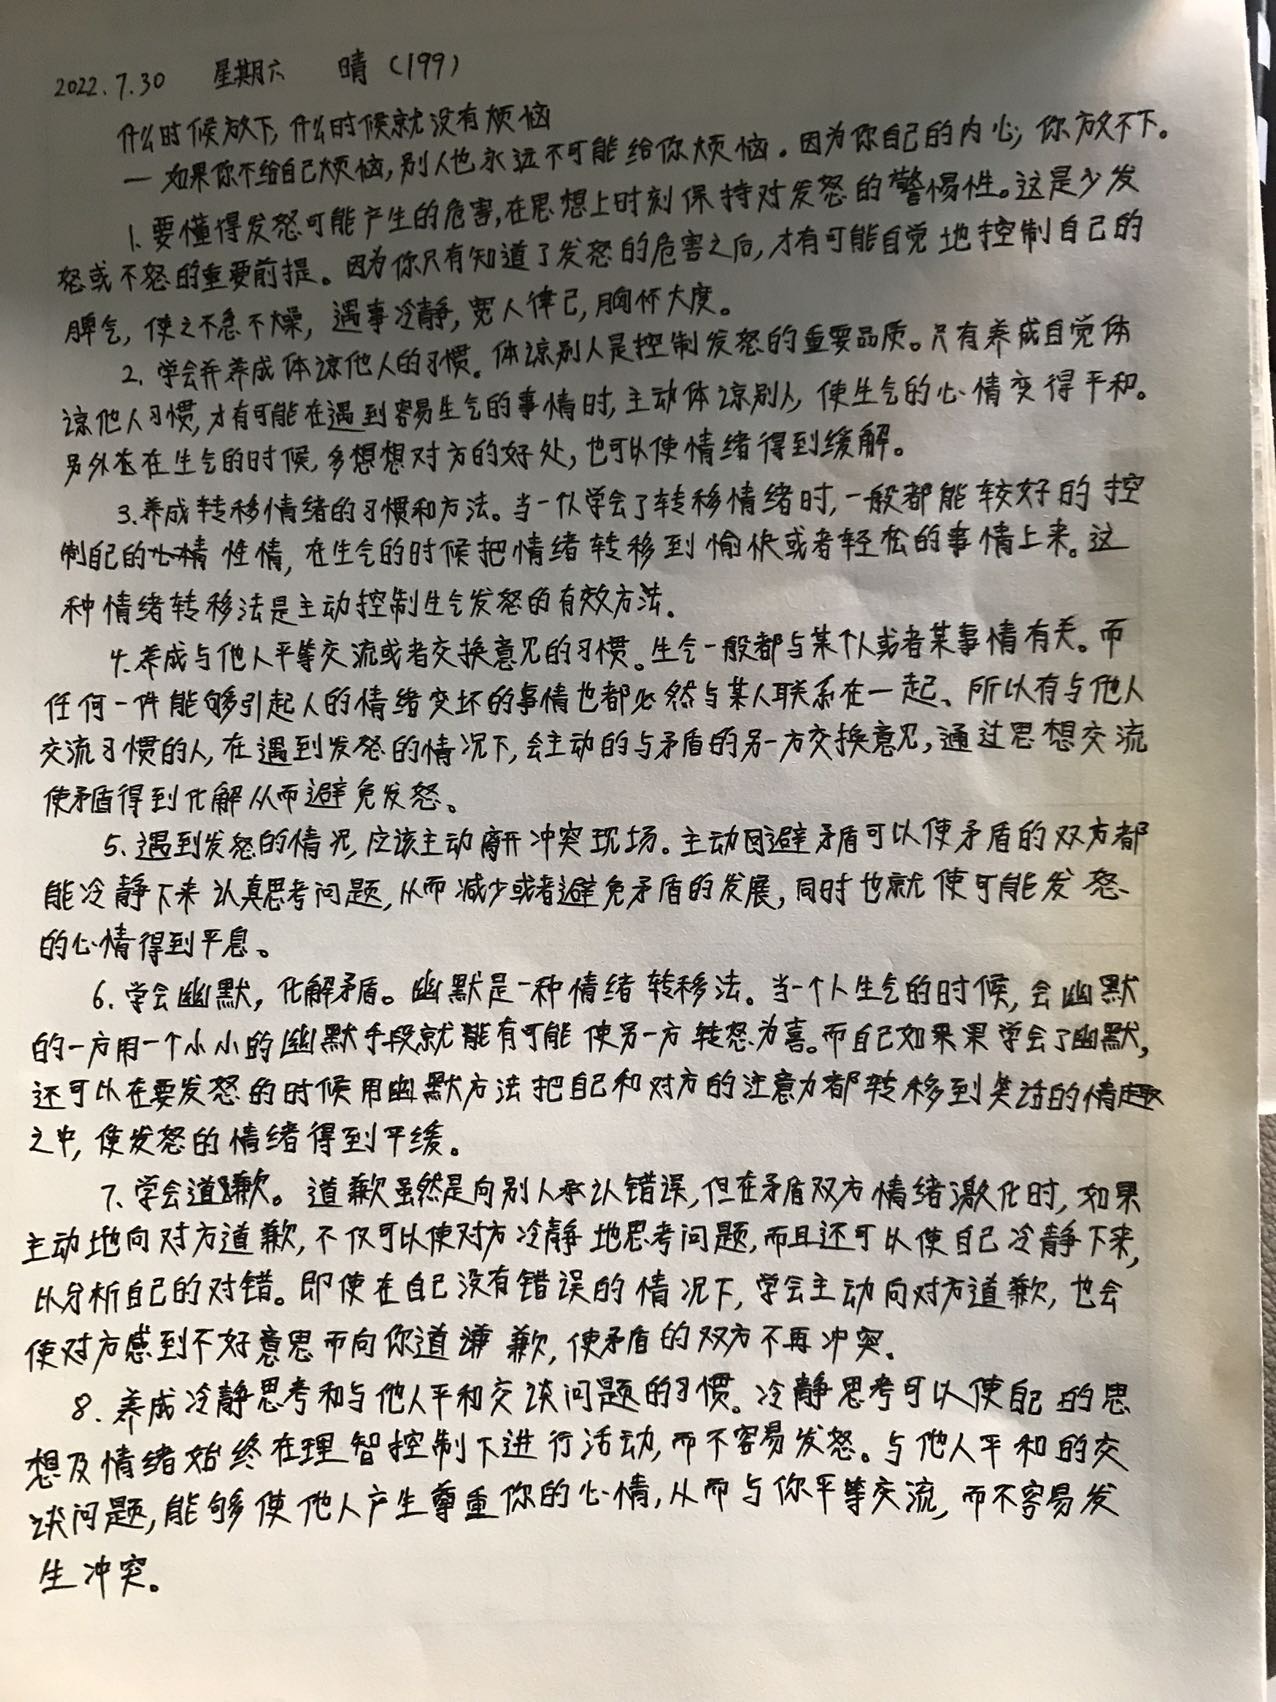 2022.7.30 星期六 晴（199）
什么时候放下，什么时候就没有烦恼
— 如果你不给自己烦恼，别人也永远不可能给你烦恼。因为你自己的内心，你放不下。
1、要懂得发怒可能产生的危害，在思想上时刻保持对发怒的警惕性。这是少发
怒或不怒的重要前提。因为你只有知道了发怒的危害之后，才有可能自觉地控制自己的
脾气，使之不急不燥，遇事冷静，宽人律己，胸怀大度。
2、学会并养成体谅他人的习惯。体谅别人是控制发怒的重要品质。只有养成自觉体
谅他人习惯，才有可能在遇到容易生气的事情时，主动体谅别人，使生气的心情变得平和。
另外在生气的时候，多想想对方的好处，也可以使情绪得到缓解。
3、养成转移情绪的习惯和方法。当一个人学会了转移情绪时，一般都能较好的控
制自己的性情，在生气的时候把情绪转移到愉快或者轻松的事情上来。这
种情绪转移法是主动控制生气发怒的有效方法。
4、养成与他人平等交流或者交换意见的习惯。生气一般都与某个人或者某事情有关。而
任何一件能够引起人的情绪变坏的事情也都必然与某人联系在一起、所以有与他人
交流习惯的人，在遇到发怒的情况下，会主动的与矛盾的另一方交换意见，通过思想交流
使矛盾得到化解从而避免发怒。
5、遇到发怒的情况，应该主动离开冲突现场。主动回避矛盾可以使矛盾的双方都
能冷静下来认真思考问题，从而减少或者避免矛盾的发展，同时也就使可能发怒
的心情得到平息。
6、学会幽默，化解矛盾。幽默是一种情绪转移法。当一个人生气的时候，会幽默
的一方用一个小小的幽默手段就能有可能使另一方转怒为喜。而自己如果果学会了幽默，
还可以在要发怒的时候用幽默方法把自己和对方的注意力都转移到笑话的情趣
之中，使发怒的情绪得到平缓。
7、学会道歉。道歉虽然是向别人承认错误，但在矛盾双方情绪激化时，如果
主动地向对方道歉，不仅可以使对方冷静地思考问题，而且还可以使自己冷静下来，
以分析自己的对错。即使在自己没有错误的情况下，学会主动向对方道歉，也会
使对方感到不好意思而向你道歉，使矛盾的双方不再冲突。
8、养成冷静思考和与他人平和交谈问题的习惯。冷静思考可以使自己的思
想及情绪始终在理智控制下进行活动，而不容易发怒。与他人平和的交
谈问题，能够使他人产生尊重你的心情，从而与你平等交流，而不容易发
生冲突。